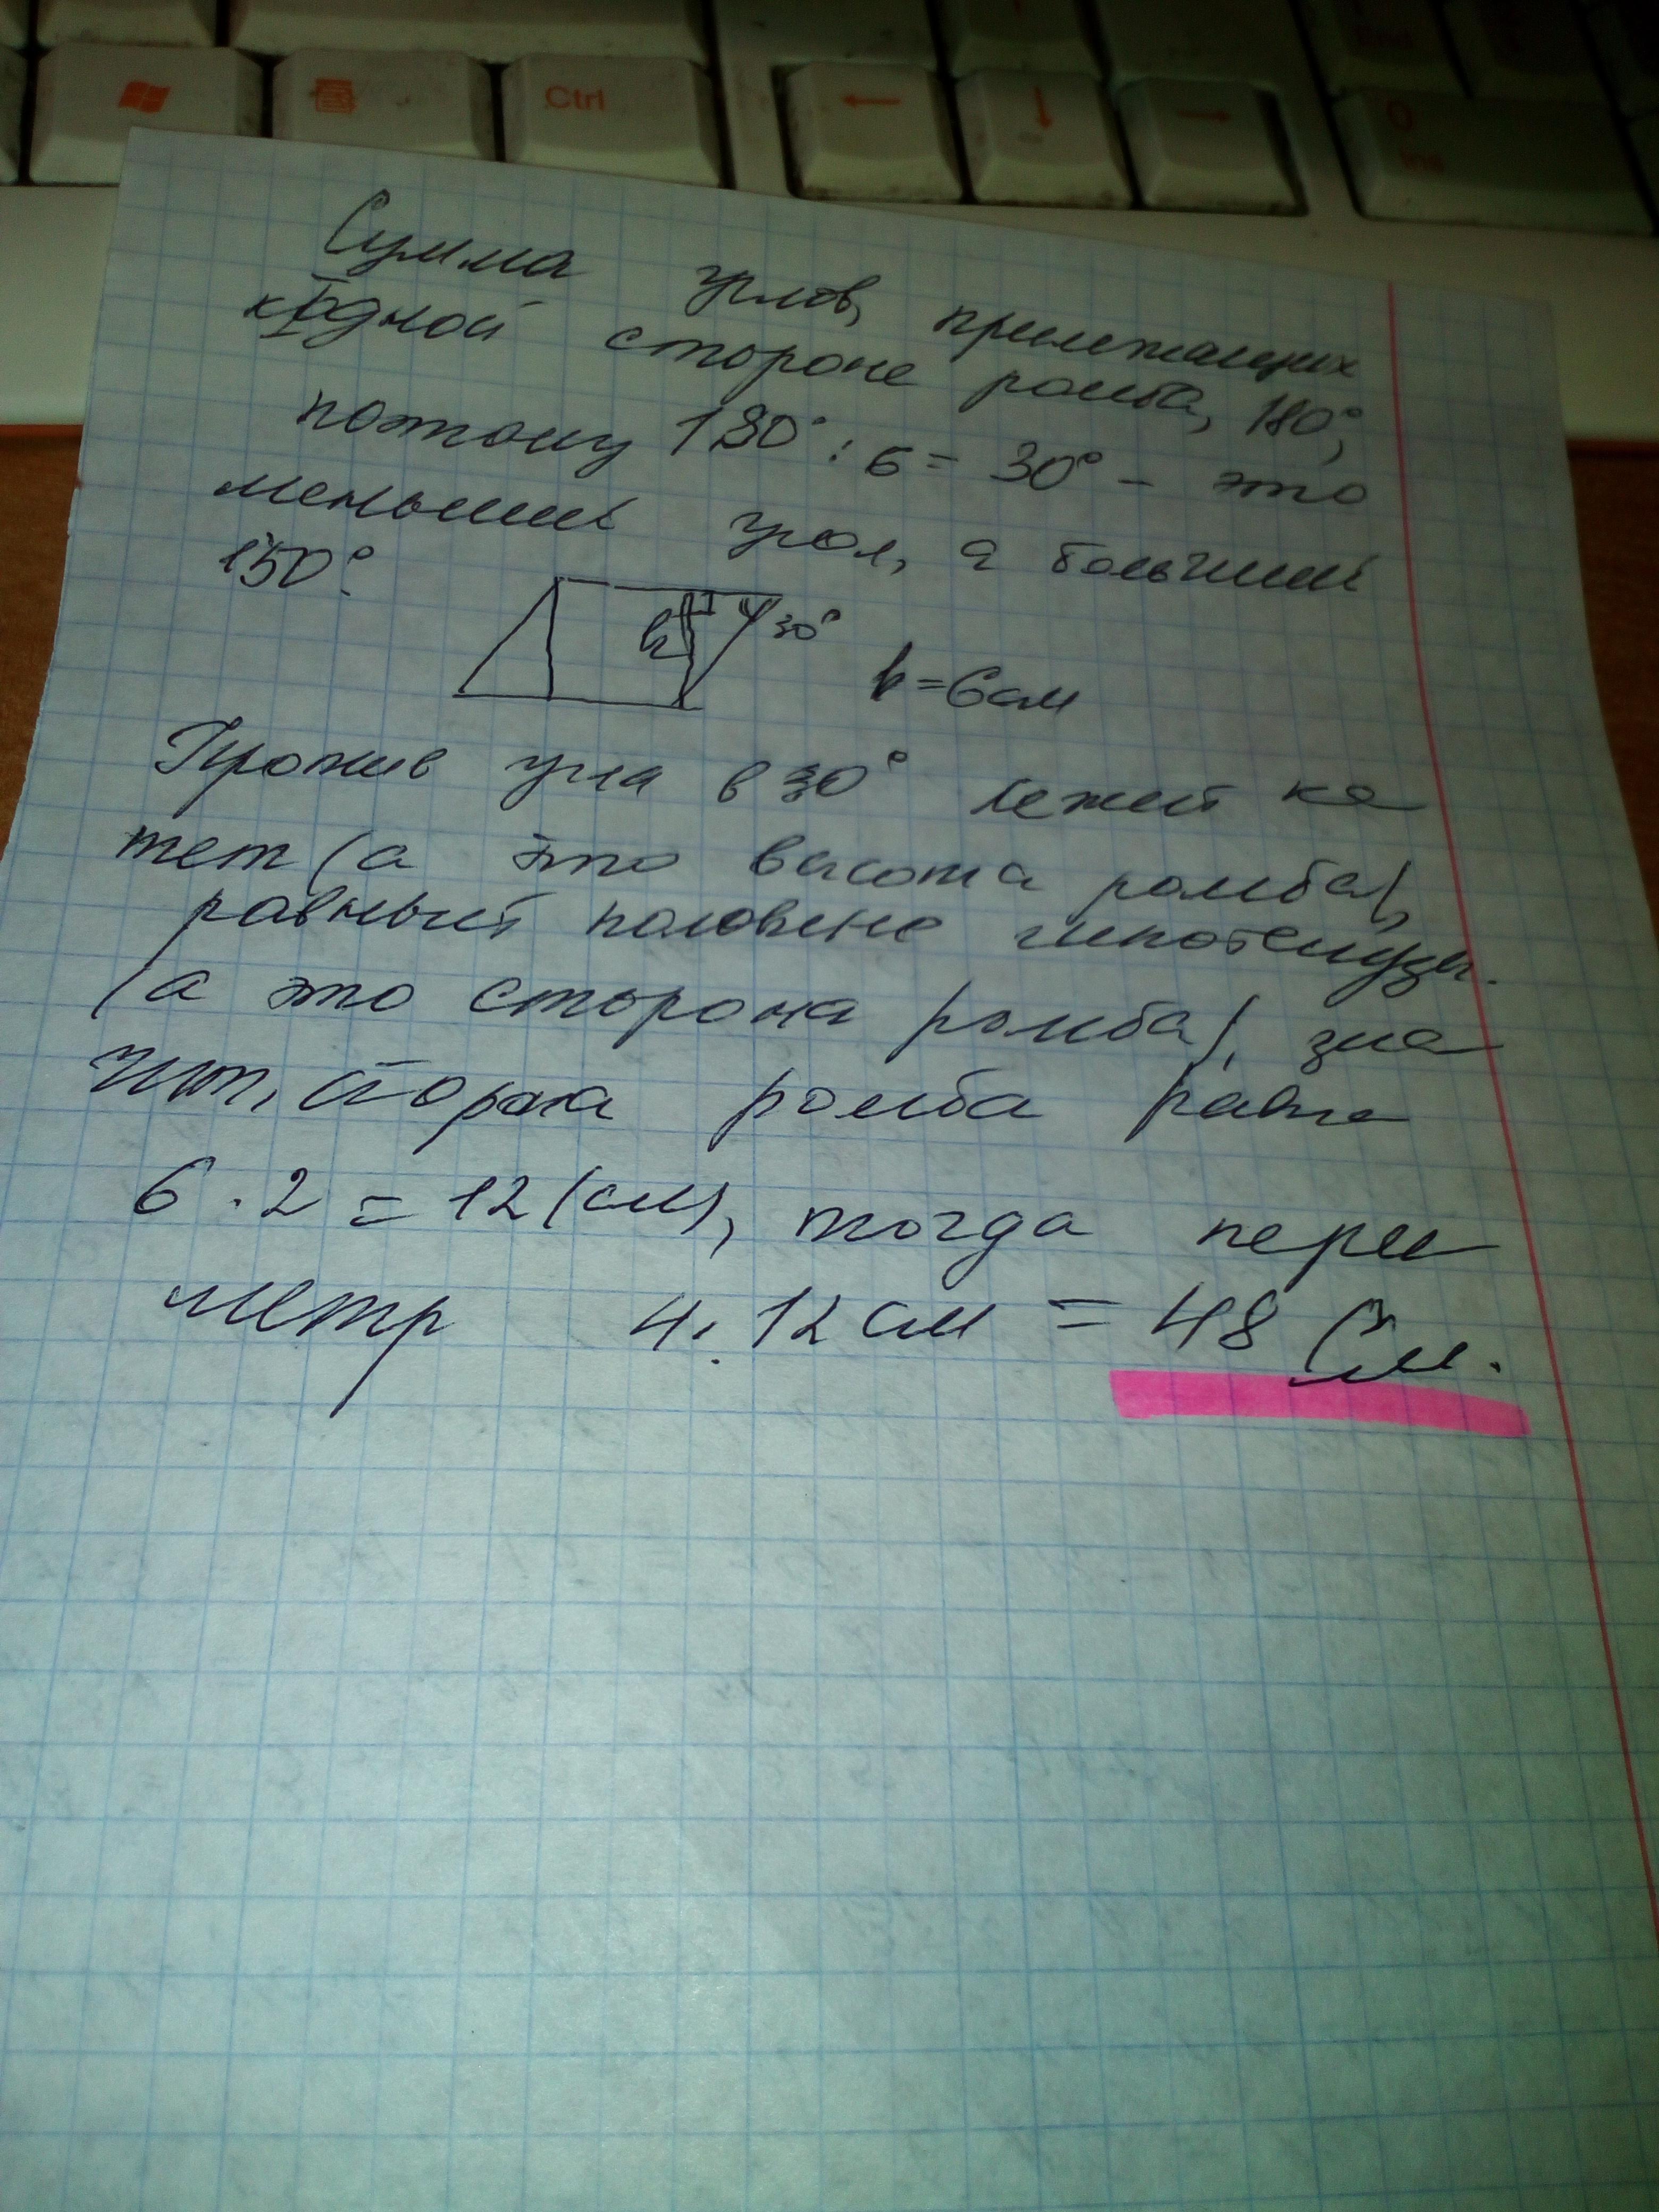 Ctrl
End
0
Ins
Сумма углов, прилежащих
к одной стороне ромба, 180°,
поэтому 180° : 6 = 30° – это
меньший угол, а больший
150°.
h
30°
h = 6 см
Против угла в 30° лежит ка
тет (а это высота ромба),
равный половине гипотенузы.
(а это сторона ромба), зна
чит, сторона ромба равна
6 · 2 = 12 (см), тогда пери
метр 4 · 12 см = 48 см.